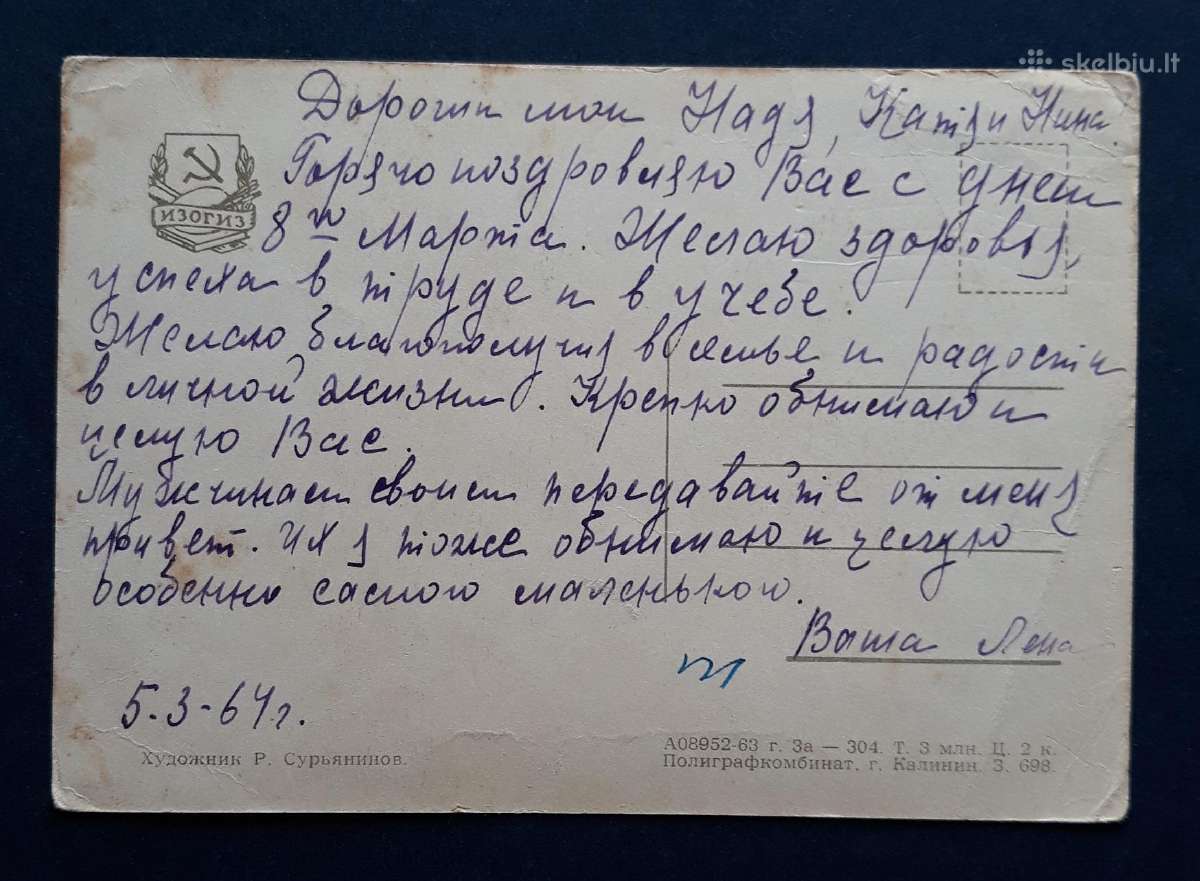 skelbiu.lt
Дорогии мои Надя, Катя и Нина
Горячо поздровляю Вас с днем
8го Марта. Желаю здоровья,
ИЗОГИЗ
успеха в труде и в учебе.
Желаю благополучия в семье и радости
в личной жизни. Крепко обнимаю и
целую Вас.
Мужчинам своим передавайте от меня
привет. Их я тоже обнимаю и целую
особенно самого маленького.
Ваша Лена
5.3-64г.
Художник Р. Сурьянинов.
А08952-63 г. За — 304. Т. 3 млн. Ц. 2 к.
Полиграфкомбинат, г. Калинин. З. 698.